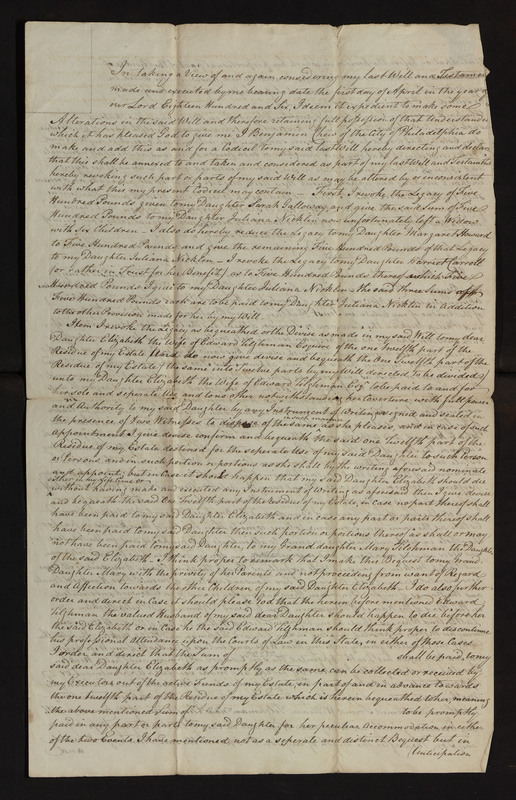 In taking a View of and again considering my last Will and Testament
made and executed by me bearing date the first day of April in the year of
our Lord Eighteen Hundred and Six, I deem it expedient to make some
Alterations in the said Will and therefore retaining full possession of that Understanding
which it has pleased God to give me I Benjamin Chew of the City of Philadelphia do
make and add this as and for a Codicil to my said last Will hereby directing and declaring
that this shall be annexed to and taken and considered as part of my last Will and Testament
hereby revoking such part or parts of my said Will as may be altered by or inconsistent
with what this my present Codicil may contain — First, I revoke the Legacy of Five
Hundred Pounds given to my Daughter Sarah Galloway and give the said sum of Five
Hundred Pounds to my Daughter Juliana Nicklin now unfortunately left a Widow
with Six Children — I also do hereby reduce the Legacy to my Daughter Margaret Howard
to Five Hundred Pounds and give the remaining Five Hundred Pounds of that Legacy
to my Daughter Juliana Nicklin — I revoke the Legacy to my Daughter Harriet Carroll
(or rather in Trust for her Benefit) as to Five Hundred Pounds thereof which Five
Hundred Pounds I give to my Daughter Juliana Nicklin — the said three Sums of
Five Hundred Pounds each are to be paid to my Daughter Juliana Nicklin in addition
to the other Provision made for her by my Will.
Item I revoke the Legacy as bequeathed or the Devise as made in my said Will to my dear
Daughter Elizabeth the Wife of Edward Tilghman Esquire of the one Twelfth part of the
Residue of my Estate and do now give devise and bequeath the One Twelfth part of the
Residue of my Estate (the same into Twelve parts by my Will directed to be divided)
unto my Daughter Elizabeth the Wife of Edward Tilghman Esqr. to be paid to and for
her sole and separate Use and to no other notwithstanding her Coverture, with full power
and Authority to my said Daughter by any Instrument of Writing signed and sealed in
the presence of two Witnesses to dispose of the same as she pleases, and in case of such
Appointment I give devise confirm and bequeath the said one Twelfth part of the
Residue of my Estate destined for the seperate Use of my said Daughter to such Person
or Persons and in such portion or portions as she shall by the writing aforesaid nominate
and appoint; but in Case it should happen that my said Daughter Elizabeth should die
either in my lifetime or
without having made and executed any Instrument of Writing as aforesaid then I give devise
and bequeath the said One Twelfth part of the Residue of my Estate, in Case no part thereof shall
have been paid to my said Daughter Elizabeth and in case any part or parts thereof shall
have been paid to my said Daughter then such portion or portions thereof as shall or may
not have been paid to my said Daughter, to my Grand daughter Mary Tilghman the Daughter
of the said Elizabeth. I think proper to remark that I make this Bequest to my Grand
Daughter Mary, with the privity of her Parents and not proceeding from want of Regard
and Affection towards the other Children of my said Daughter Elizabeth. I do also further
order and direct in Case it should please God that the herein before mentioned Edward
Tilghman the valued Husband of my said dear Daughter should happen to die before her
the said Elizabeth or in Case he the said Edward Tilghman should think proper to discontinue
his professional attendance upon the Courts of Law in this State, in either of those Cases
I order and direct that the Sum of shall be paid to my
said dear Daughter Elizabeth as promptly as the same can be collected or received by
my Executors out of the active Funds of my Estate, in part of and in advance towards
the one Twelfth part of the Residue of my Estate which is herein bequeathed to her, meaning
the above mentioned sum of to be promptly
paid in any part or parts to my said Daughter for her peculiar accommodation in either
of the two Events I have mentioned not as a seperate and distinct Bequest but in
Anticipation